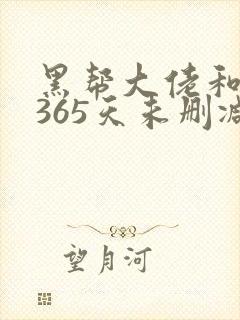 黑帮大佬和
365天未删减
望月河